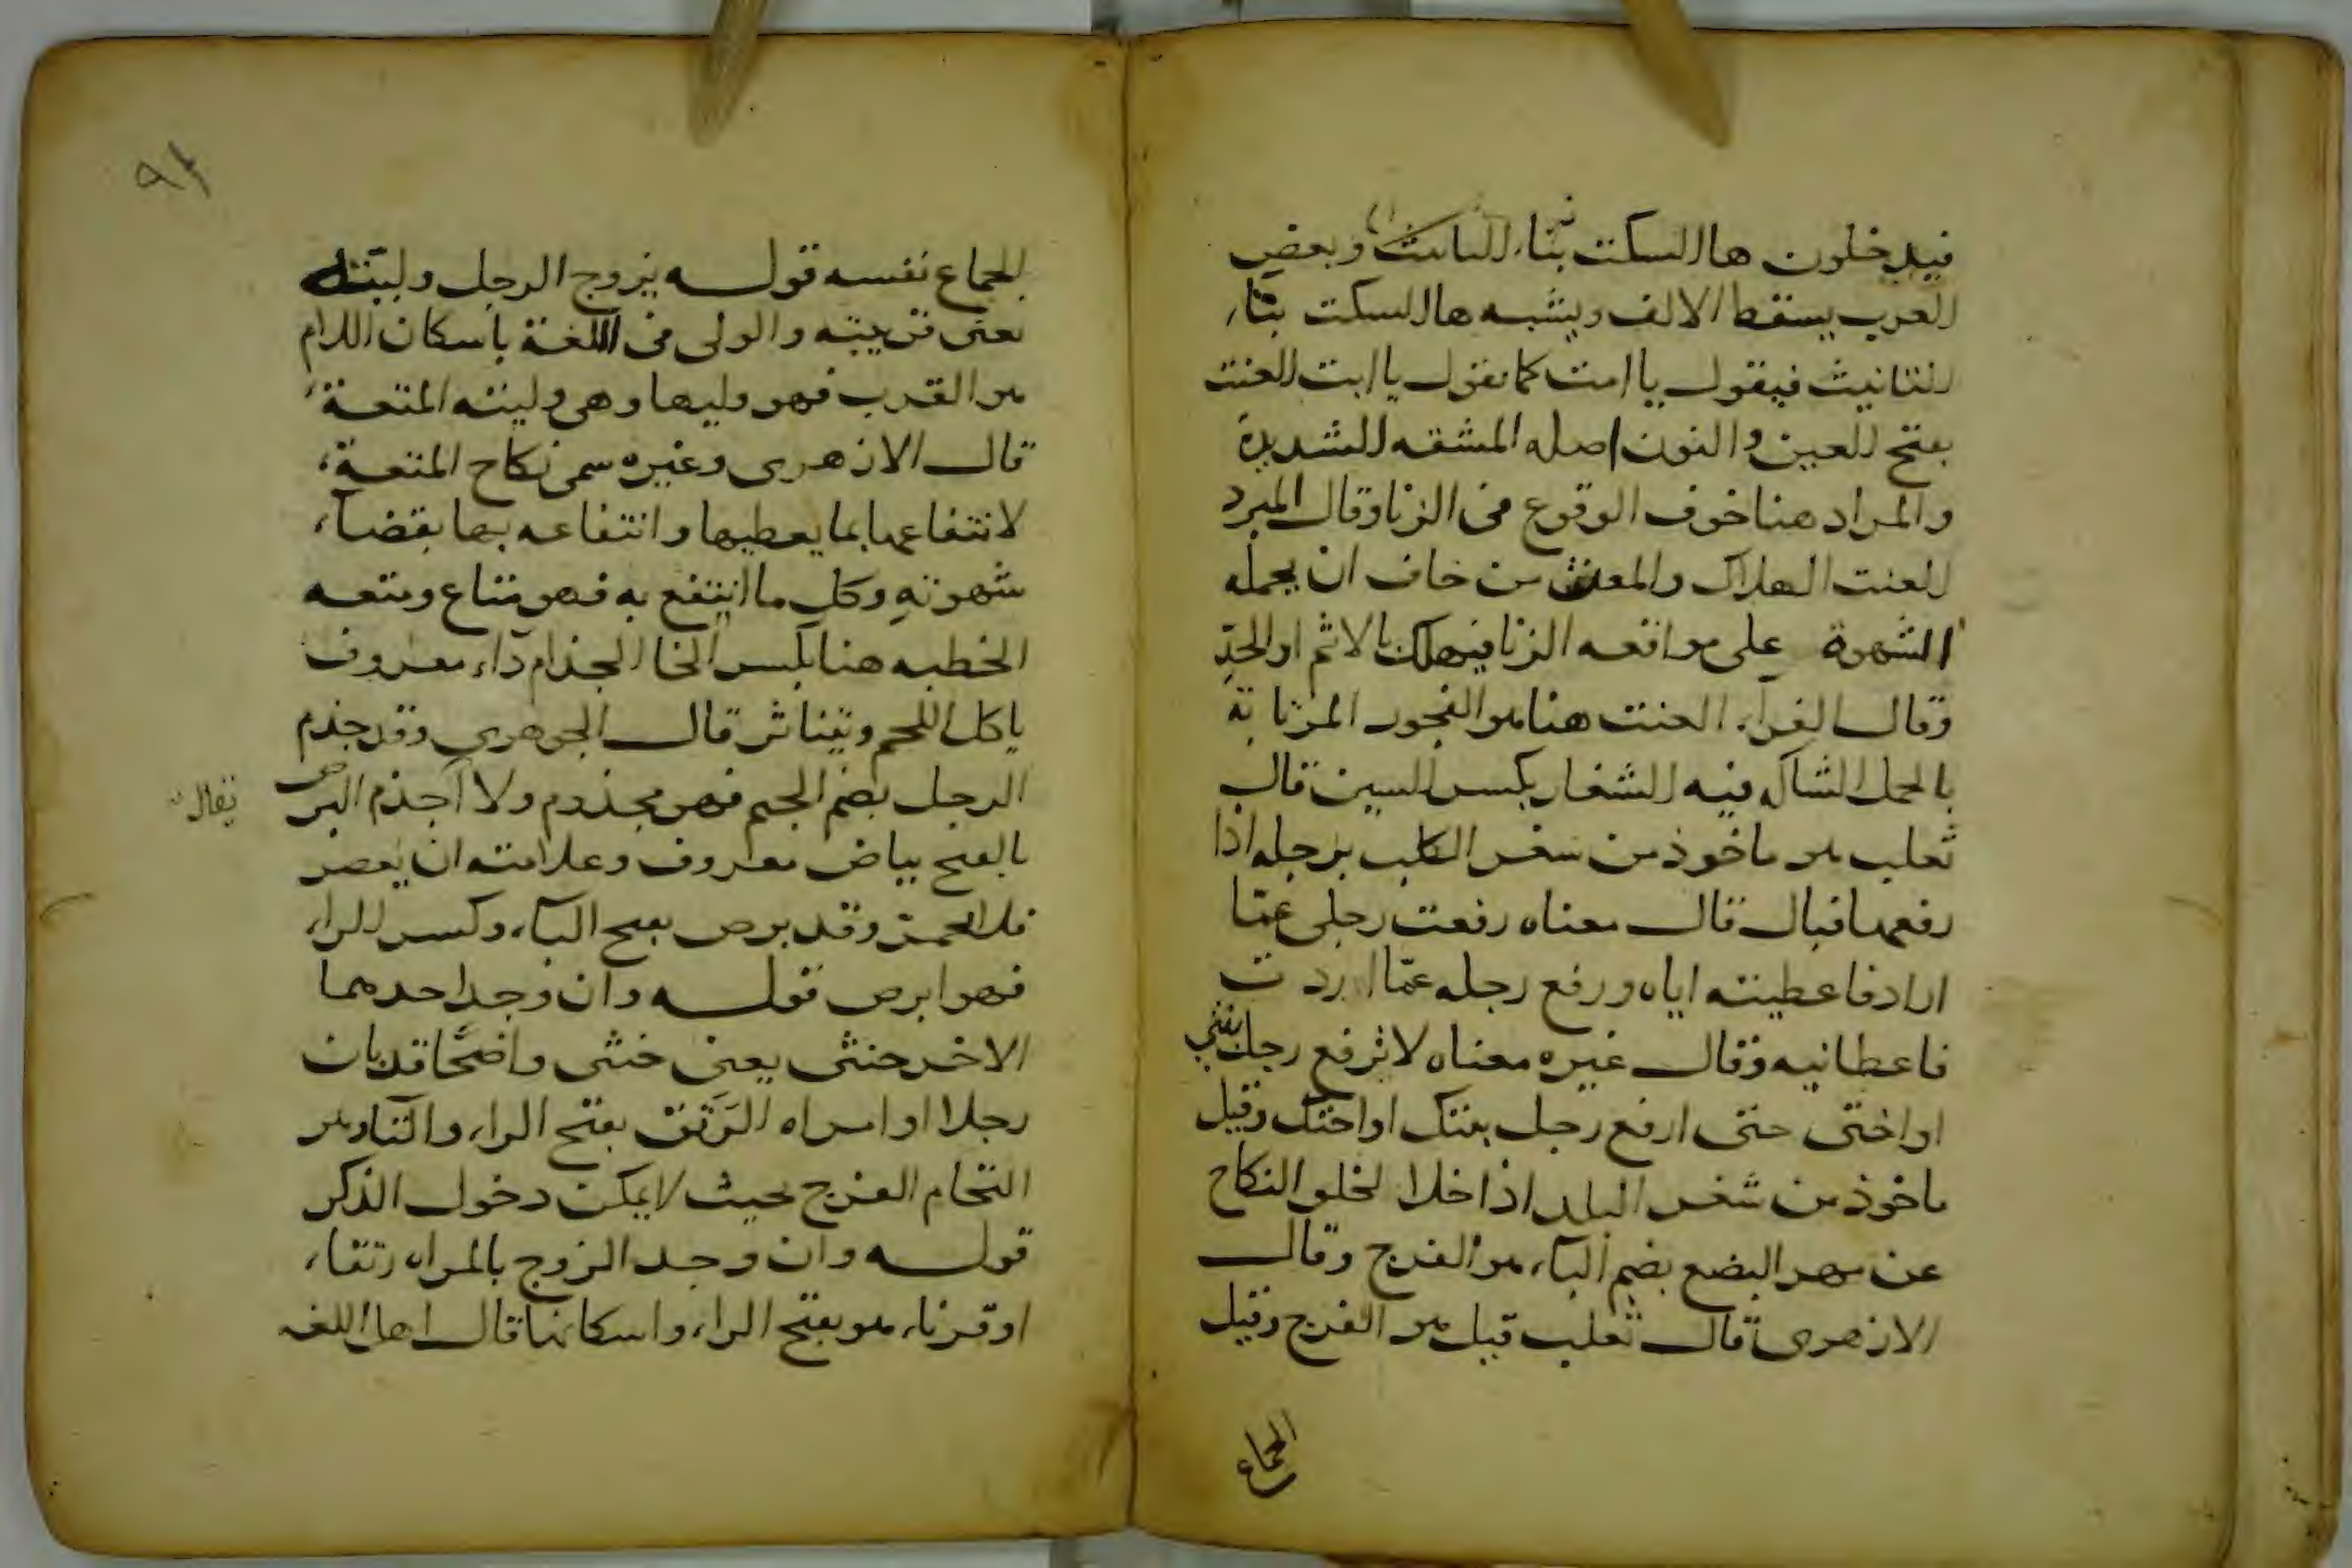 فيدخلون هاالسكت بتاء التانيث وبعض
العرب يسقط الالف ويشبه هاالسكت بتاء
التانيث فيقول يا امت كما تقول يا ابت العنت
بفتح العين والنون اصله المشقه الشديدة
والمراد هنا خوف الوقوع في الزنا وقال المبرد
العنت الهلاك والمعنى من خاف ان يحمله
الشهوة على مواقعه الزنا فيهلك بالاثم او الحدّ
وقال الفراء العنت هنا هو الفجور المزابنة
بالحمل الشاك فيه الشغار بكسر السين قال
ثعلب هو ماخوذ من شغر الكلب برجله اذا
رفعها فبال قال معناه رفعت رجلي عمّا
اراد فاعطيته اياه ورفع رجله عمّا اردت
فاعطانيه وقال غيره معناه لا ترفع رجل بنتي
او اختي حتى ارفع رجل بنتك او اختك وقيل
ماخوذ من شغر البلد اذا خلا لخلو النكاح
عن مهر البضع بضم الباء هو الفرج وقال
الازهرى قال ثعلب قيل هو الفرج وقيل
الجماع
٩٢
الجماع نفسه قوله يزوج الرجل وليته
يعنى قريبته والولى في اللغة باسكان اللام
هو القرب فهو وليها وهي وليته المتعة
قال الازهرى وغيره سمى نكاح المتعة
لانتفاعها بما يعطيها وانتفاعه بها بقضاء
شهوته وكل ما انتفع به فهو متاع ومتعه
الخطبه هنا بكسر الخا الجذام داء معروف
ياكل اللحم ويتناثر قال الجوهري وقد جذم
الرجل بضم الجيم فهو مجذوم ولا اجذم البرص
يقال
بالفتح بياض معروف وعلامته ان يعصر
فلا يحمر وقد برص بفتح الباء وكسر الراء
فهو ابرص قوله وان وجد احدهما
الاخر خنثى يعنى خنثى واضحًا قد بان
رجلا او امراه الرَتَق بفتح الراء والتا وهو
التحام الفرج بحيث لا يمكن دخول الذكر
قوله وان وجد الزوج بالمراه رتقاء
او قرناء هو بفتح الراء واسكانها قال اهل اللغه